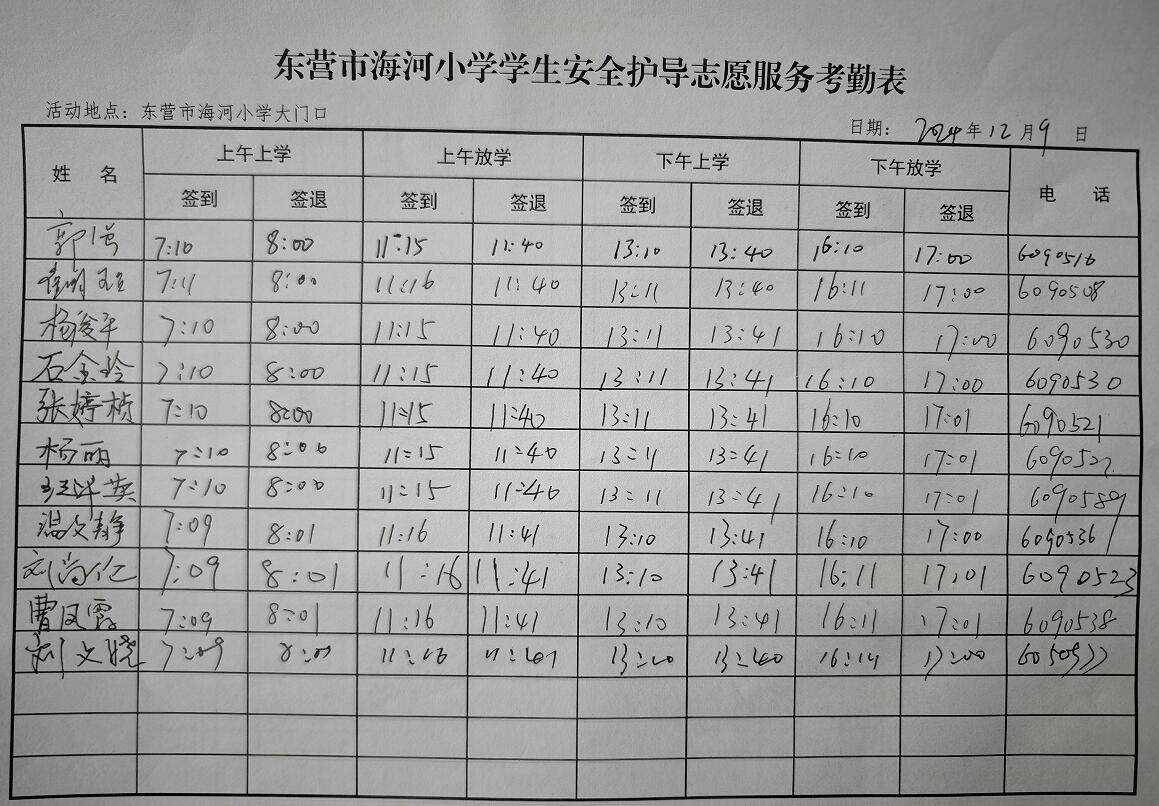 东营市海河小学学生安全护导志愿服务考勤表
活动地点：东营市海河小学大门口
日期： 2024年12月9日
姓 名 上午上学 上午放学 下午上学 下午放学 电 话
签到 签退 签到 签退 签到 签退 签到 签退
郭 7:10 8:00 11:15 11:40 13:10 13:40 16:10 17:00 6090516
7:11 8:00 11:16 11:40 13:11 13:40 16:11 17:00 6090508
杨俊平 7:10 8:00 11:15 11:40 13:11 13:41 16:10 17:00 6090530
石金玲 7:10 8:00 11:15 11:40 13:11 13:41 16:10 17:00 6090530
张婷桢 7:10 8:00 11:15 11:40 13:11 13:41 16:10 17:01 6090521
杨丽 7:10 8:00 11:15 11:40 13:11 13:41 16:10 17:01
7:10 8:00 11:15 11:40 13:11 13:41 16:10 17:01 6090589
温文静 7:09 8:01 11:16 11:41 13:10 13:41 16:10 17:00 6090536
刘尚仁 7:09 8:01 11:16 11:41 13:10 13:41 16:11 17:01 6090523
曹凤霞 7:09 8:01 11:16 11:41 13:10 13:41 16:11 17:01 6090538
刘文晓 7:09 8:01 11:16 13:10 13:40 17:00